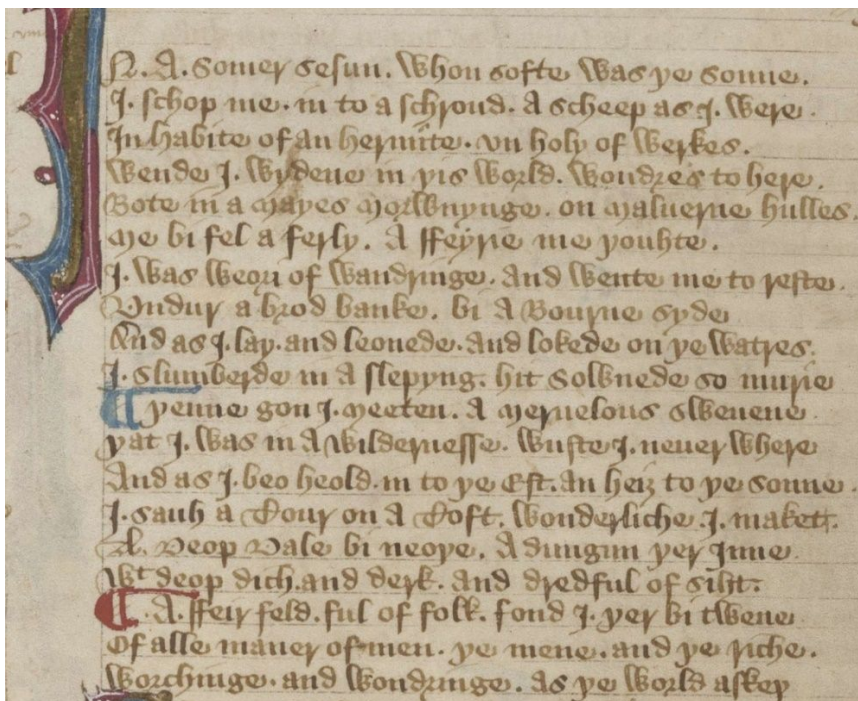 N. A. Somer sesun. Whon softe was þe sonne.
I. schop me. in to a schroud. A scheep as I. were.
In habite of an hermite. vn holy of werkes.
Wende I. wydene in þis world. wondres to here.
Bote in a Mayes Morwnynge. on Maluerne hulles.
Me bi fel a ferly. A ffeyrie me þouhte.
I. was weori of wandringe. and wente me to reste.
Vndur a brod banke. bi A Bourne syde
And as I. lay. and leonede. and lokede on þe watres.
I. slumberde in A slepyng. hit Solwnede so murie
¶ þenne gon I. Meeten. A Meruelous sweuene.
þat I. was in A wildernesse. wuste I. neuer where
And as I. beo heold. in to þe Est. an heiz to þe sonne.
I. sauh a Tour on A Toft. wonderliche I. maket.
A. Deop Dale bi neoþe. A dungun þer Inne.
Wt deop dich. and derk. and dredful of siht.
¶. A. ffeir feld. ful of folk. fond I. þer bi twene
Of alle maner of men. þe mene. and þe riche.
Worchinge. and wondringe. as þe world askeþ